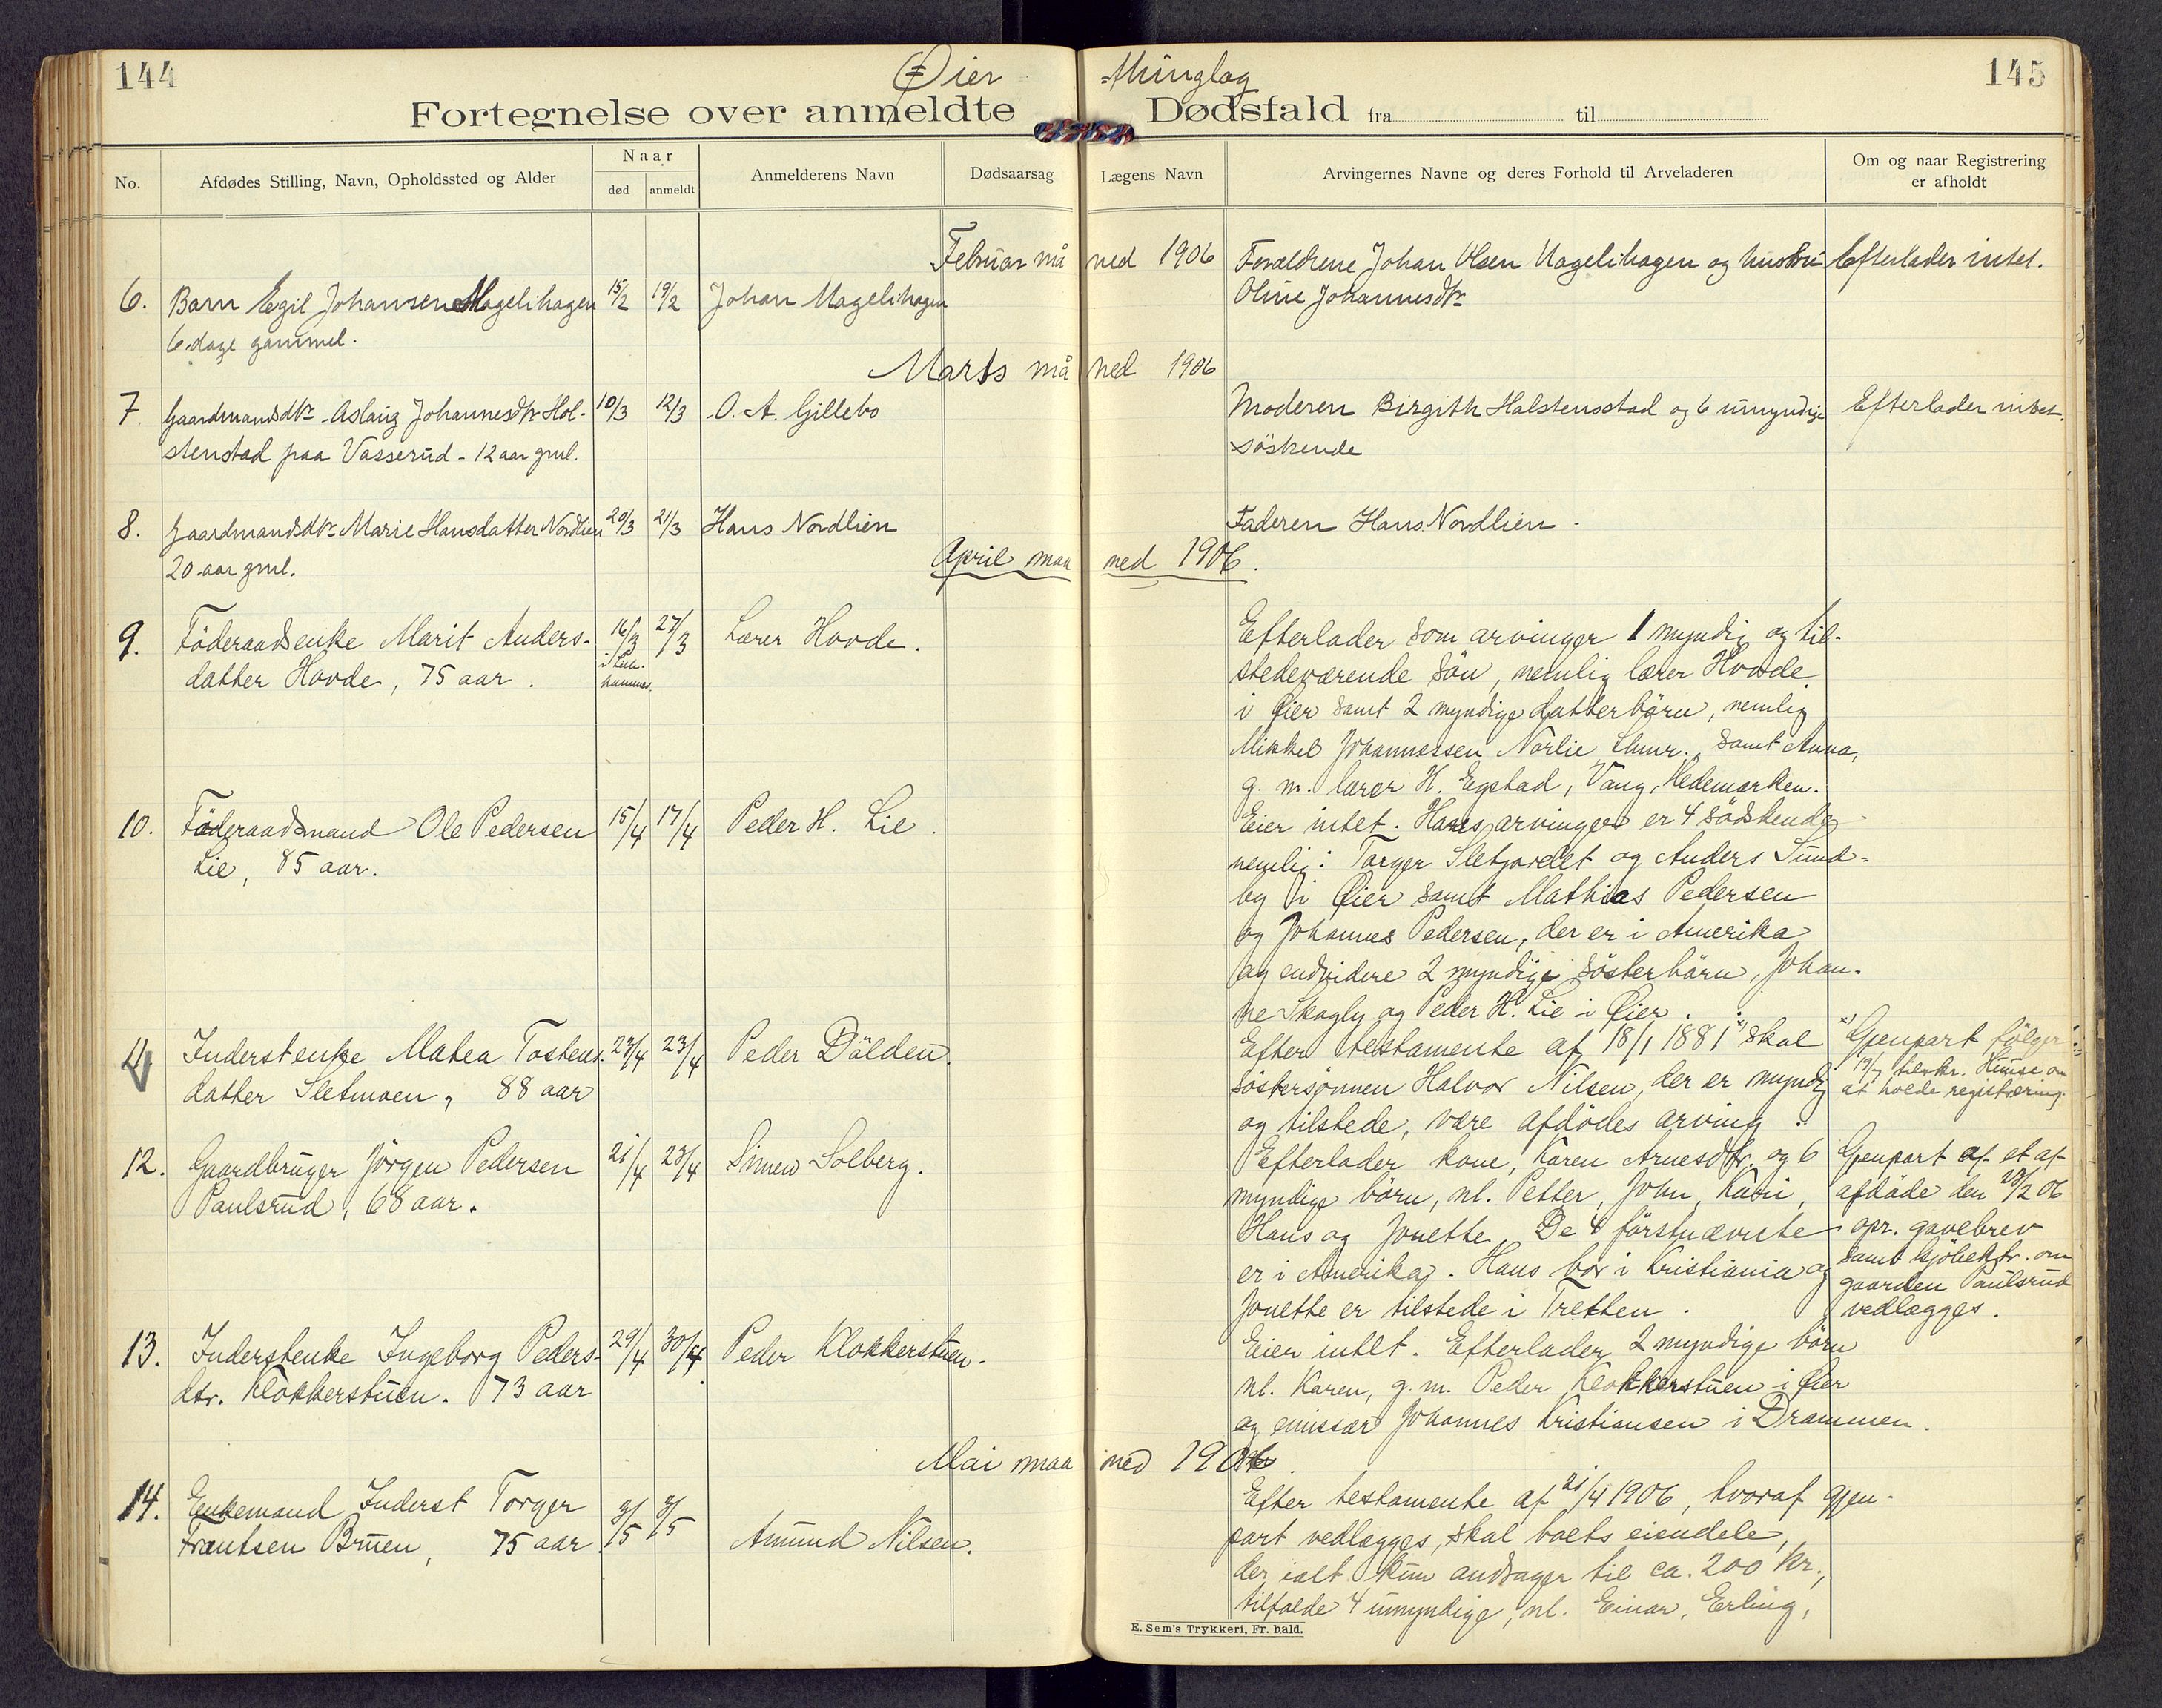 144
Øier
thinglag
145
Fortegnelse over anmeldte Dødsfald fra til
No.
Afdødes Stilling, Navn, Opholdssted og Alder
Naar
død
anmeldt
Anmelderens Navn
Dødsaarsag
Lægens Navn
Arvingernes Navne og deres Forhold til Arveladeren
Om og naar Registrering
er afholdt
Februar måned 1906
6. Barn Egil Johansen Magelihagen 15/2 19/2 Johan Magelihagen
6 dage gammel.
Forældrene Johan Olsen Magelihagen og hustru
Oline Johannesdtr
Efterlader intet.
Marts måned 1906
7 Gaardmandsdtr Aslaug Johannesdtr Hol-
stenstad paa Vasserud - 12 aar gml.
10/3 12/3 O. A. Gillebo
Moderen Birgith Halstensstad og 6 umyndige
søskende
Efterlader intet.
8. Gaardmandsdtr Marie Hansdatter Nordlien 20/3 21/3 Hans Nordlien
20 aar gml.
Faderen Hans Nordlien.
April maaned 1906.
9. Föderaadsenke Marit Anders-
datter Hovde, 75 aar.
16/3 27/3 Lærer Hovde.
i Lille-
hammer
Efterlader som arvinger 1 myndig og til-
stedeværende sön, nemlig lærer Hovde
i Øier samt 2 myndige datterbörn, nemlig
Mikkel Johannessen Norlie Lhmr., samt Anna,
g. m. lærer H. Egstad, Vang, Hedemarken.
10. Föderaadsmand Ole Pedersen
Lie, 85 aar.
15/4 17/4 Peder H. Lie.
Eier intet. Hans arvinger er 4 södskende
nemlig: Torger Sletjordet og Anders Sund-
by i Øier samt Mathias Pedersen
og Johannes Pedersen, der er i Amerika
og endvidere 2 myndige sösterbörn, Johan-
ne Skogly og Peder H. Lie i Øier.
11 Inderstenke Matea Tostens-
datter Sletmoen, 88 aar
23/4 23/4 Peder Dölden.
Efter testamente af 18/1 1881 x) skal
söstersönnen Halvor Nilsen, der er myndig
og tilstede, være afdödes arving.
x) Gjenpart fölger
19/7 tilskr. Hunse om
at holde registrering.
12. Gaardbruger Jörgen Pedersen
Paulsrud, 68 aar.
21/4 23/4 Simen Solberg.
Efterlader kone, Karen Arnesdtr. og 6
myndige börn, nl. Petter, John, Kari,
Hans og Jonette. De 4 förstnævnte
er i Amerika. Hans bor i Kristiania og
Jonette er tilstede i Tretten.
Gjenpart af et af
afdöde den 28/2 06
opr. gavebrev
samt kjöbektr. om
gaarden Paulsrud
vedlægges.
13. Inderstenke Ingeborg Peders-
dtr. Klokkerstuen. 73 aar
29/4 30/4 Peder Klokkerstuen.
Eier intet. Efterlader 2 myndige börn
nl. Karen, g. m. Peder Klokkerstuen i Øier
og emissær Johannes Kristiansen i Drammen.
Mai maaned 1906.
14. Enkemand Inderst Torger
Frantsen Bruen, 75 aar
3/5 5/5 Amund Nilsen.
Efter testamente af 21/4 1906, hvoraf gjen-
part vedlægges, skal boets eiendele,
der ialt kun andrager til ca. 200 kr.,
tilfalde 4 umyndige, nl. Einar, Erling,
E. Sem's Trykkeri, Fr. hald.